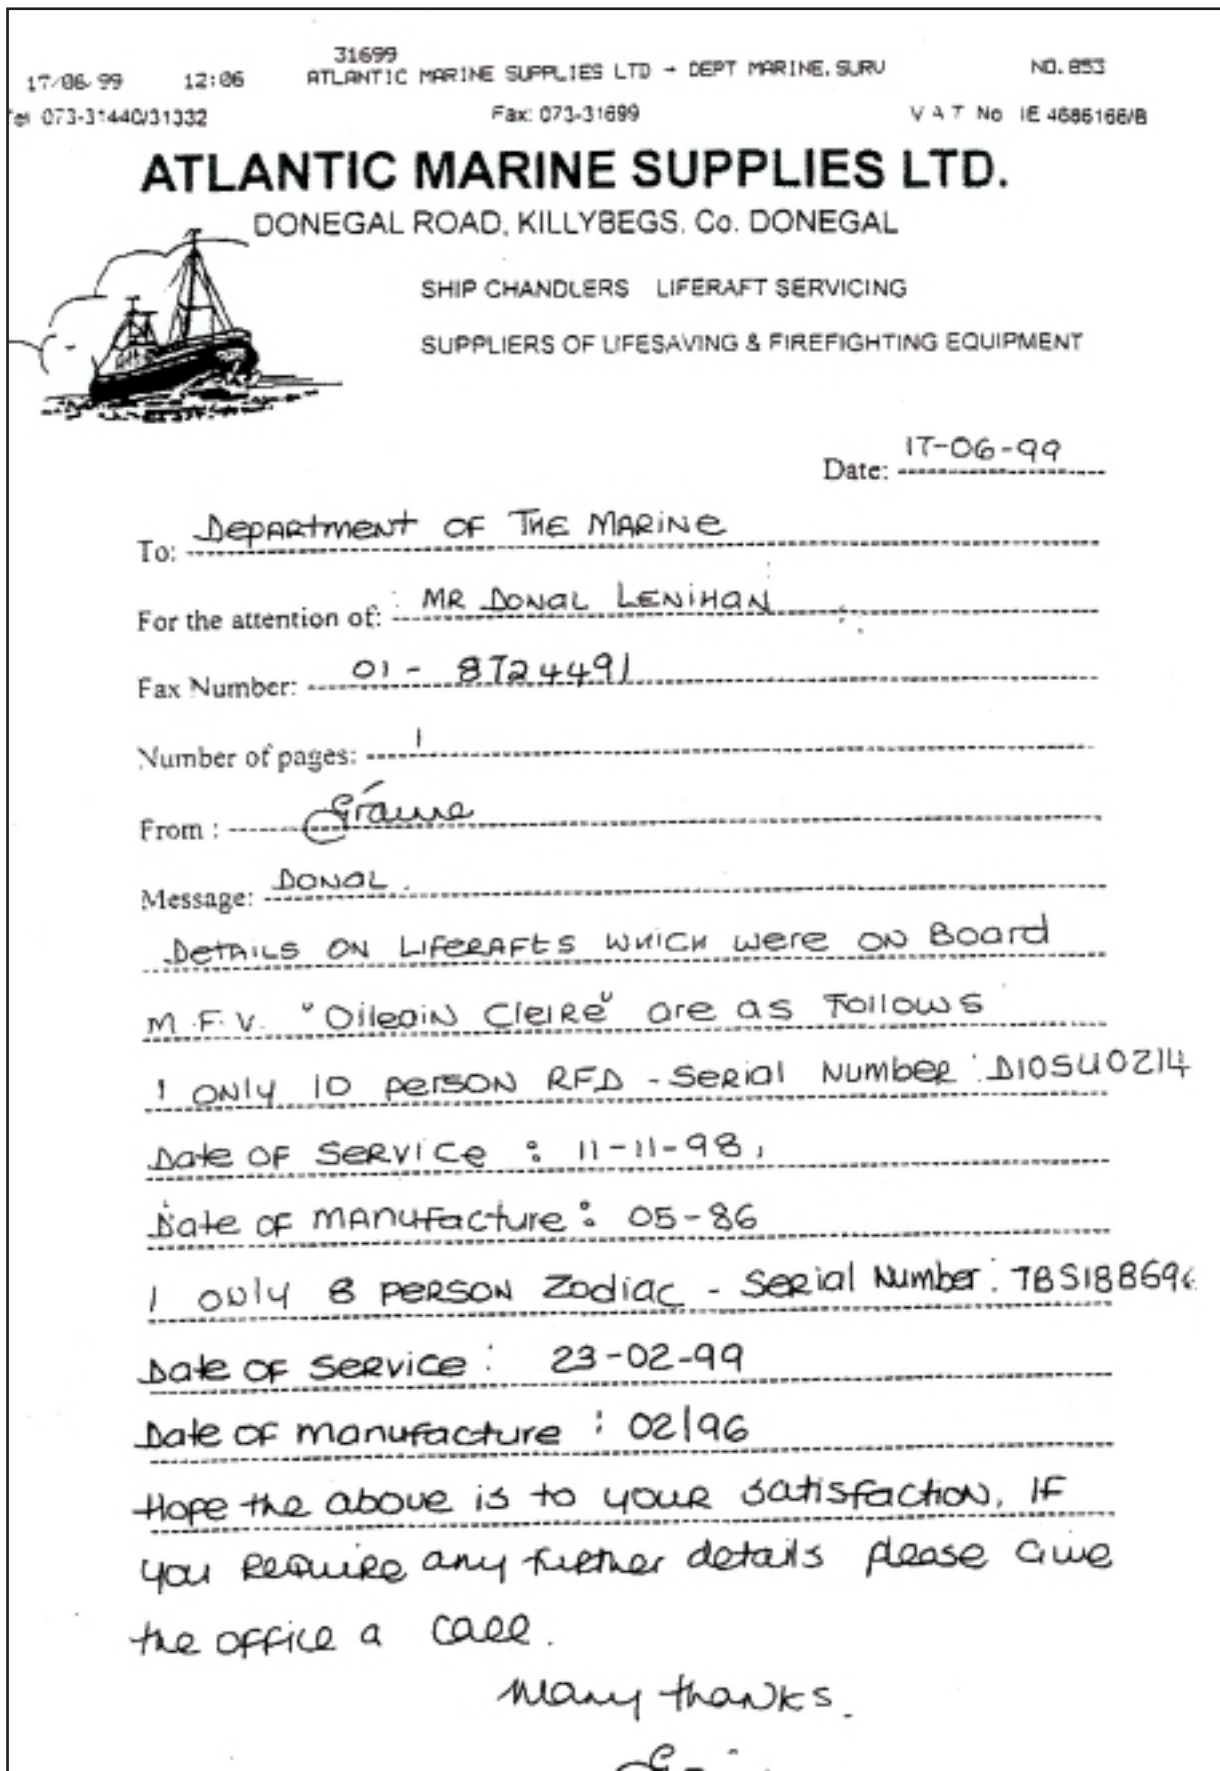 31699
17/06/99 12:06 ATLANTIC MARINE SUPPLIES LTD → DEPT MARINE.SURV NO. 853
Tel 073-31440/31332 Fax: 073-31699 V A T No IE 4686166/B
ATLANTIC MARINE SUPPLIES LTD.
DONEGAL ROAD, KILLYBEGS. Co. DONEGAL
SHIP CHANDLERS LIFERAFT SERVICING
SUPPLIERS OF LIFESAVING & FIREFIGHTING EQUIPMENT
Date: 17-06-99
To: Department of The Marine
For the attention of: MR Donal Lenihan
Fax Number: 01 - 8724491
Number of pages: 1
From : Gráinne
Message: Donal.
Details on Liferafts which were on Board
M.F.V. "Oileain Cleire" are as Follows
1 only 10 person RFD - Serial Number : D10SU0214
Date of Service : 11-11-98,
Date of manufacture : 05-86
1 only 8 person Zodiac - Serial Number :
Date of Service : 23-02-99
Date of manufacture : 02/96
Hope the above is to your satisfaction, If
you require any further details please Give
the office a call.
Many thanks.